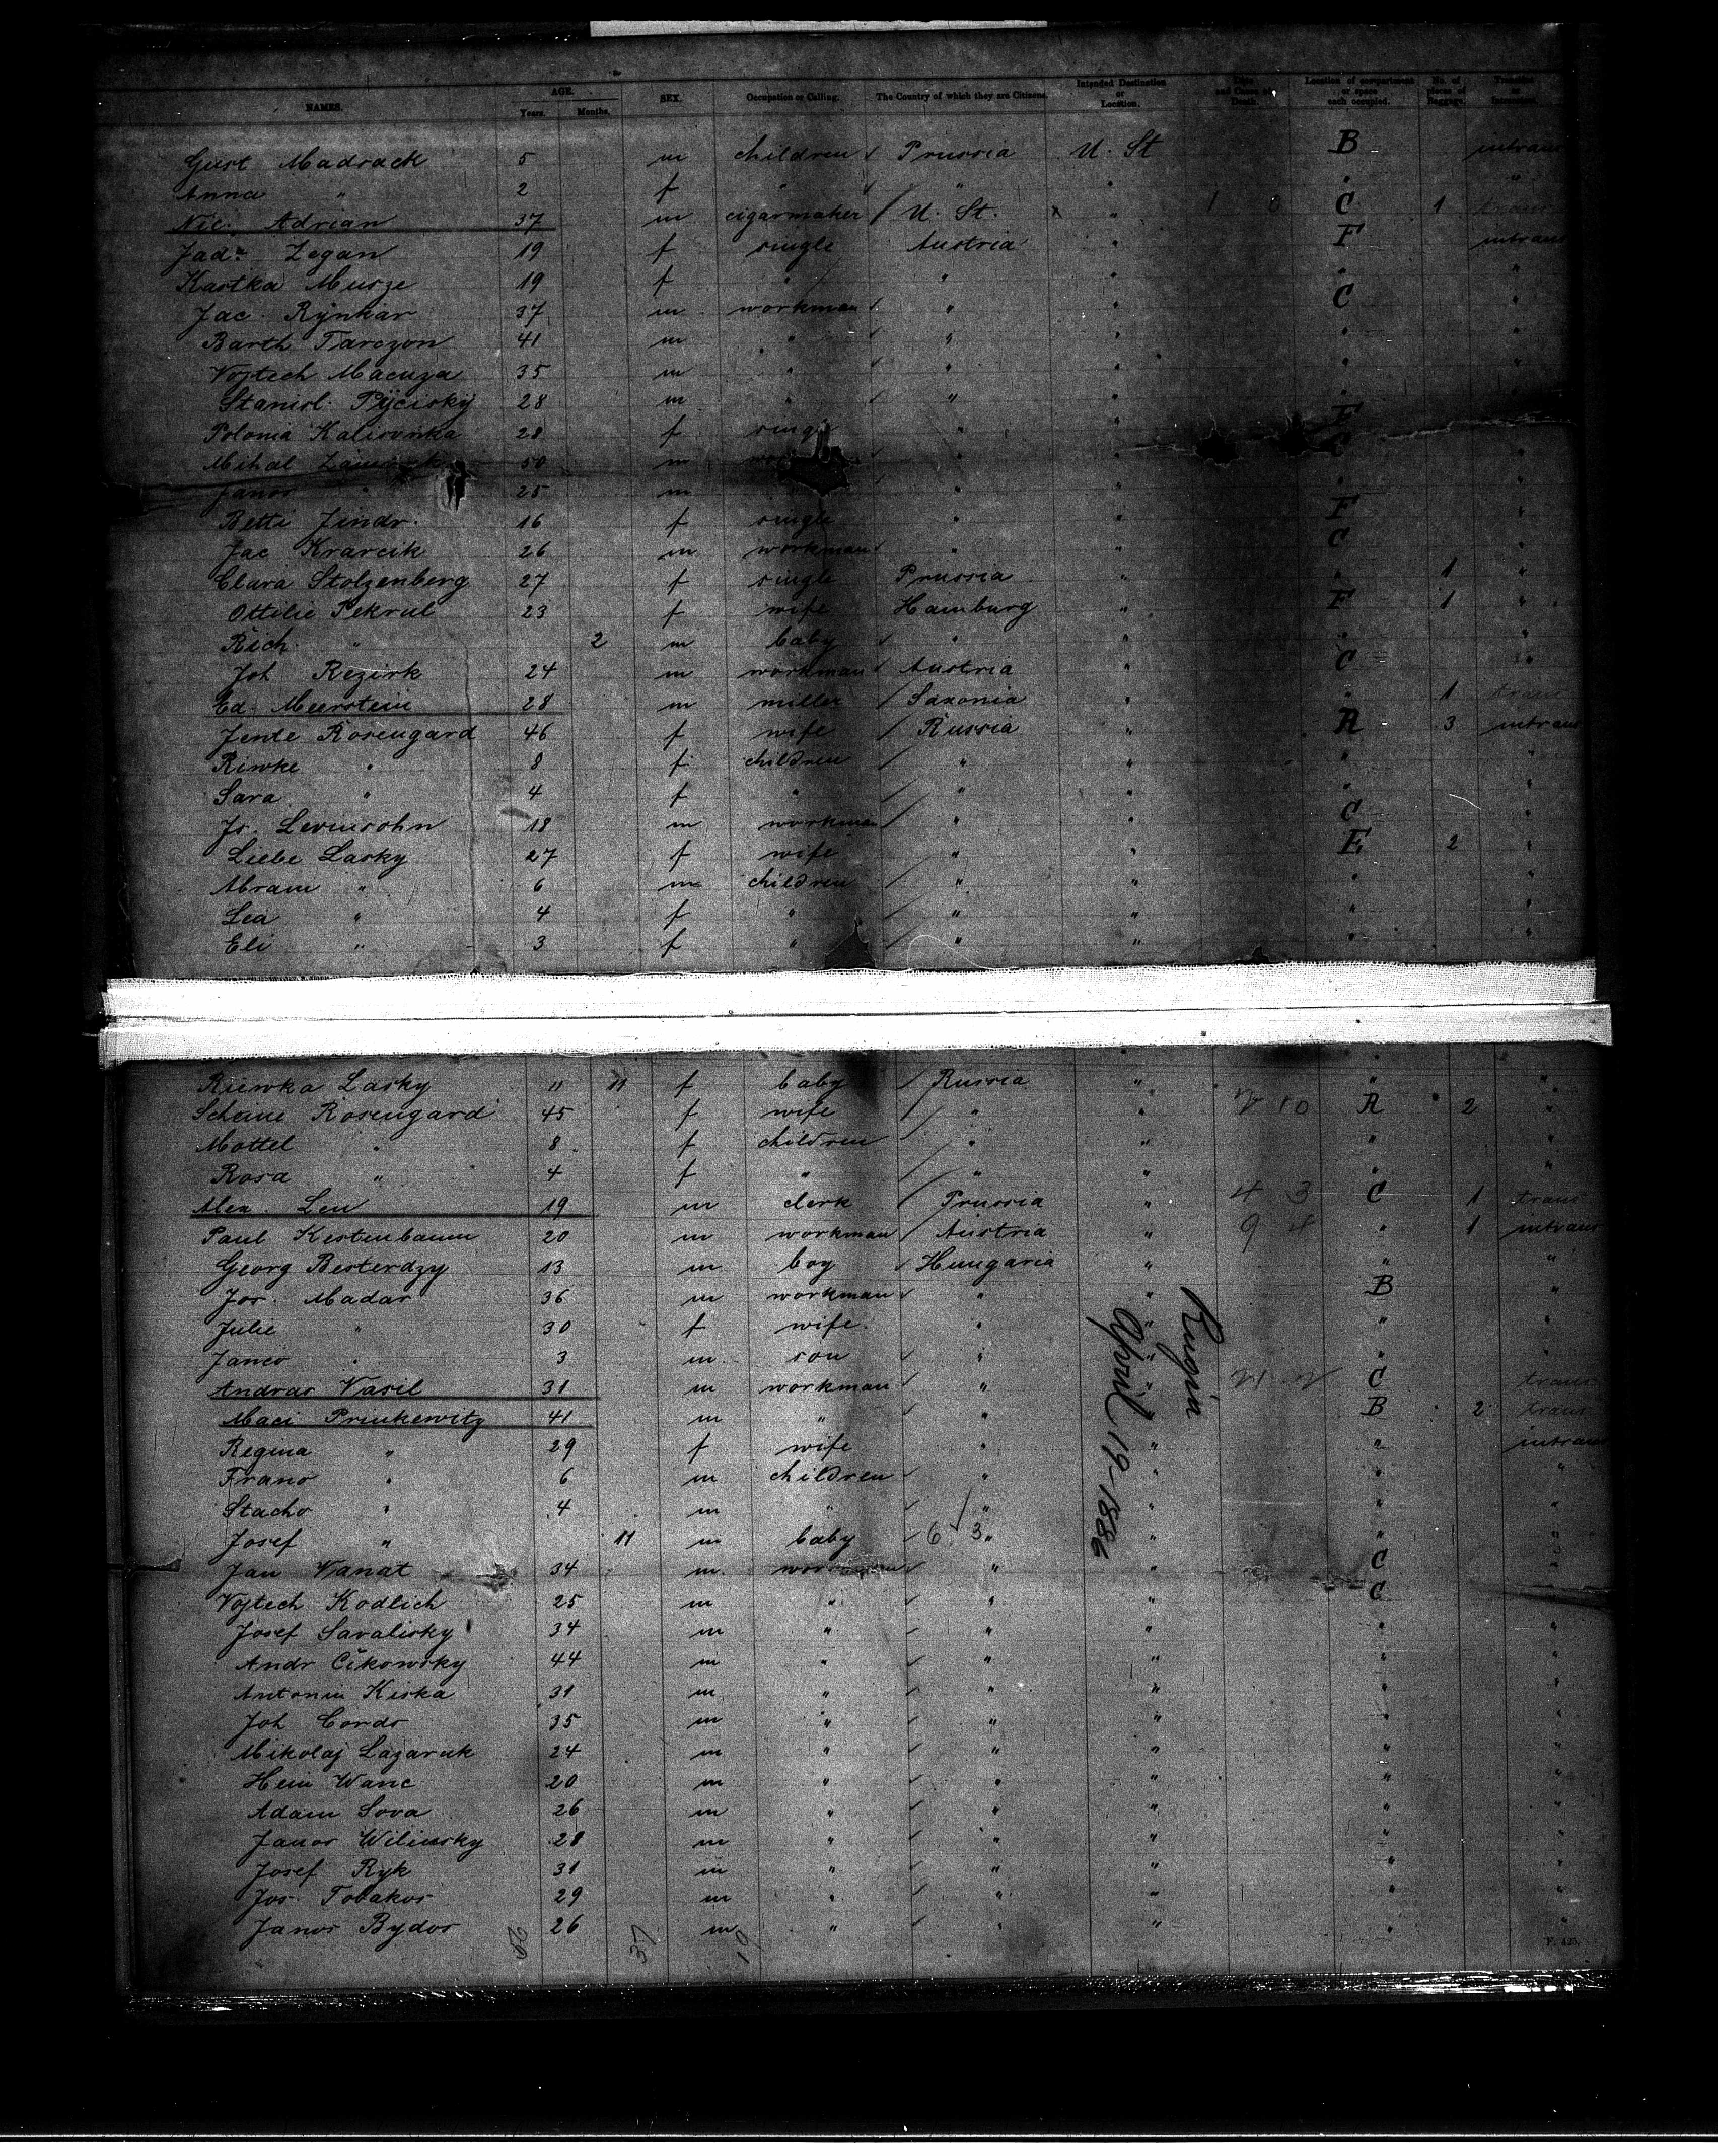 NAMES. AGE. Years. Months. SEX. Occupation or Calling. The Country of which they are Citizens. Intended Destination or Location. Date and Cause of Death. Location of compartment or space each occupied. No. of pieces of Baggage. Transient or
Gust Madrack 5 m children Prussia U. St B intrans
Anna " 2 f " " " " "
Nic. Adrian 37 m cigarmaker / U. St. x " 1 0 C 1 trans
Zegan 19 f single Austria " F intrans
Kastka Musze 19 f " " " " "
Jac. Rynkar 37 m workman " " C "
Barth Tarczon 41 m " " " " "
Vojtech Macuza 35 m " " " " "
Stanisl. Pÿcisky 28 m " " " "
Polonia Kalisovnka 28 f single " " F
Mihal 50 m " " C "
Janos " 25 m " " " "
Betti Jindr. 16 f single " " F "
Jac Krarcik 26 m workman " " C "
Clara Stolzenberg 27 f single Prussia " " 1 "
Ottilie Pekrul 23 f wife Hamburg " F 1 "
Rich. " 2 m baby " " " "
Joh Rezirk 24 m workman Austria " C "
Ed. Meerstein 28 m miller / Saxonia " " 1 trans
Jente Rosengard 46 f wife / Russia " A 3 intrans
Riwke " 8 f children / " " " "
Sara " 4 f " / " " " "
Js. Levinsohn 18 m workman / " " C "
Liebe Lasky 27 f wife " " E 2 "
Abram " 6 m children / " " " "
Lea " 4 f " / " " " "
Eli " 3 f " / " " " "
Riewka Lasky " 11 f baby / Russia " " "
Scheine Rosengard 45 f wife / " " 2 10 A 2 "
Mottel " 8 f children / " " " "
Rosa " 4 f " / " " " "
Alex. Leu 19 m clerk / Prussia " 4 3 C 1 trans
Paul Kestenbaum 20 m workman / Austria " 9 4 " 1 intrans
Georg Besterdzy 13 m boy Hungaria " " "
Jos. Madar 36 m workman " " B "
Julie " 30 f wife. " " " "
Janco " 3 m son " " " "
Andras Vasil 31 m workman " " 21 2 C trans
Maci Prinkewitz 41 m " " B 2 trans
Regina " 29 f wife " " " intrans
Frano " 6 m children " " " "
Stacho " 4 m " " " " "
Josef " 11 m baby 6 3 " " " "
Jan Vanat 34 m workman " " C "
Vojtech Kodlich 25 m " " " C
Josef Savalisky 34 m " " " " "
Andr Čikowsky 44 m " " " " "
Antonin Kiska 31 m " " " " "
Joh Cords 35 m " " " " "
Mikolaj Lazaruk 24 m " " " " "
Hein Wanc 20 m " " " " "
Adam Sova 26 m " " " " "
Janos Wilinsky 28 m " " " " "
Josef Ryk 31 m " " " " "
Jos. Tobakos 29 m " " " " "
Janos Bydos 26 m " " " " "
Rugia
April 19-1886
37